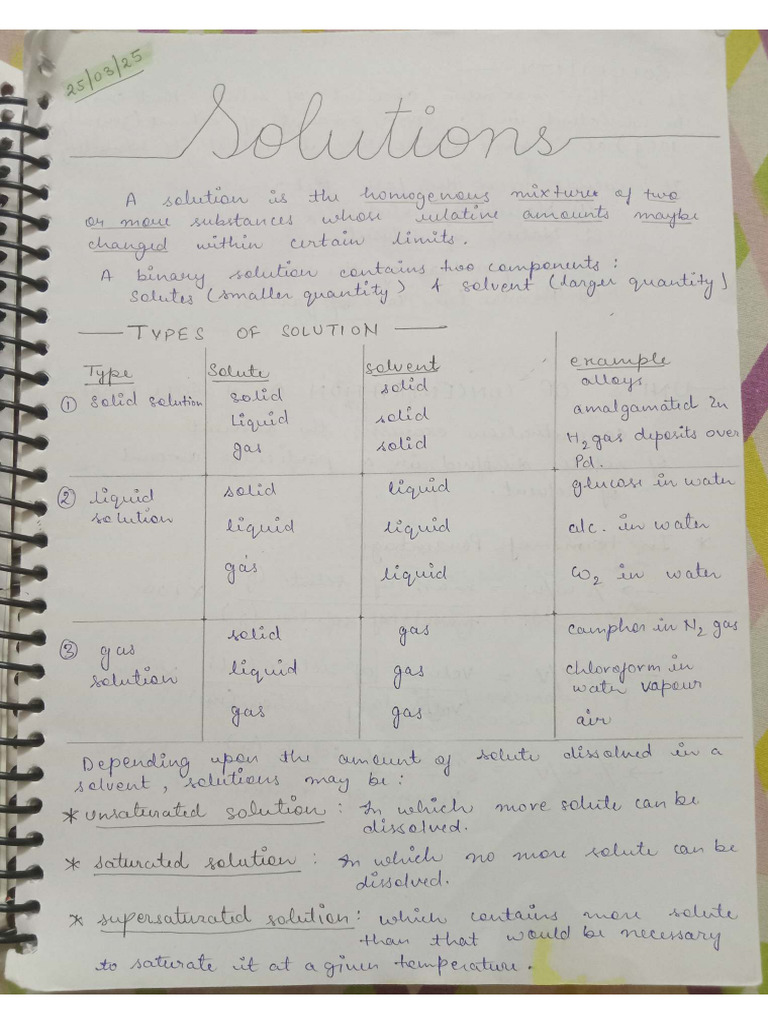 25/03/25
Solutions
A solution is the homogenous mixture of two
or more substances whose relative amounts maybe
changed within certain limits.
A binary solution contains two components :
solutes (smaller quantity) & solvent (larger quantity)
TYPES OF SOLUTION
Type Solute solvent example
① solid solution solid solid alloys
Liquid solid amalgamated Zn
gas solid H₂ gas deposits over
Pd.
② liquid solution solid liquid glucose in water
liquid liquid alc. in water
gas liquid CO₂ in water
③ gas solution solid gas camphor in N₂ gas
liquid gas chloroform in
water vapour
gas gas air
Depending upon the amount of solute dissolved in a
solvent, solutions may be :
* unsaturated solution : In which more solute can be
dissolved.
* saturated solution : In which no more solute can be
dissolved.
* supersaturated solution : which contains more solute
than that would be necessary
to saturate it at a given temperature.